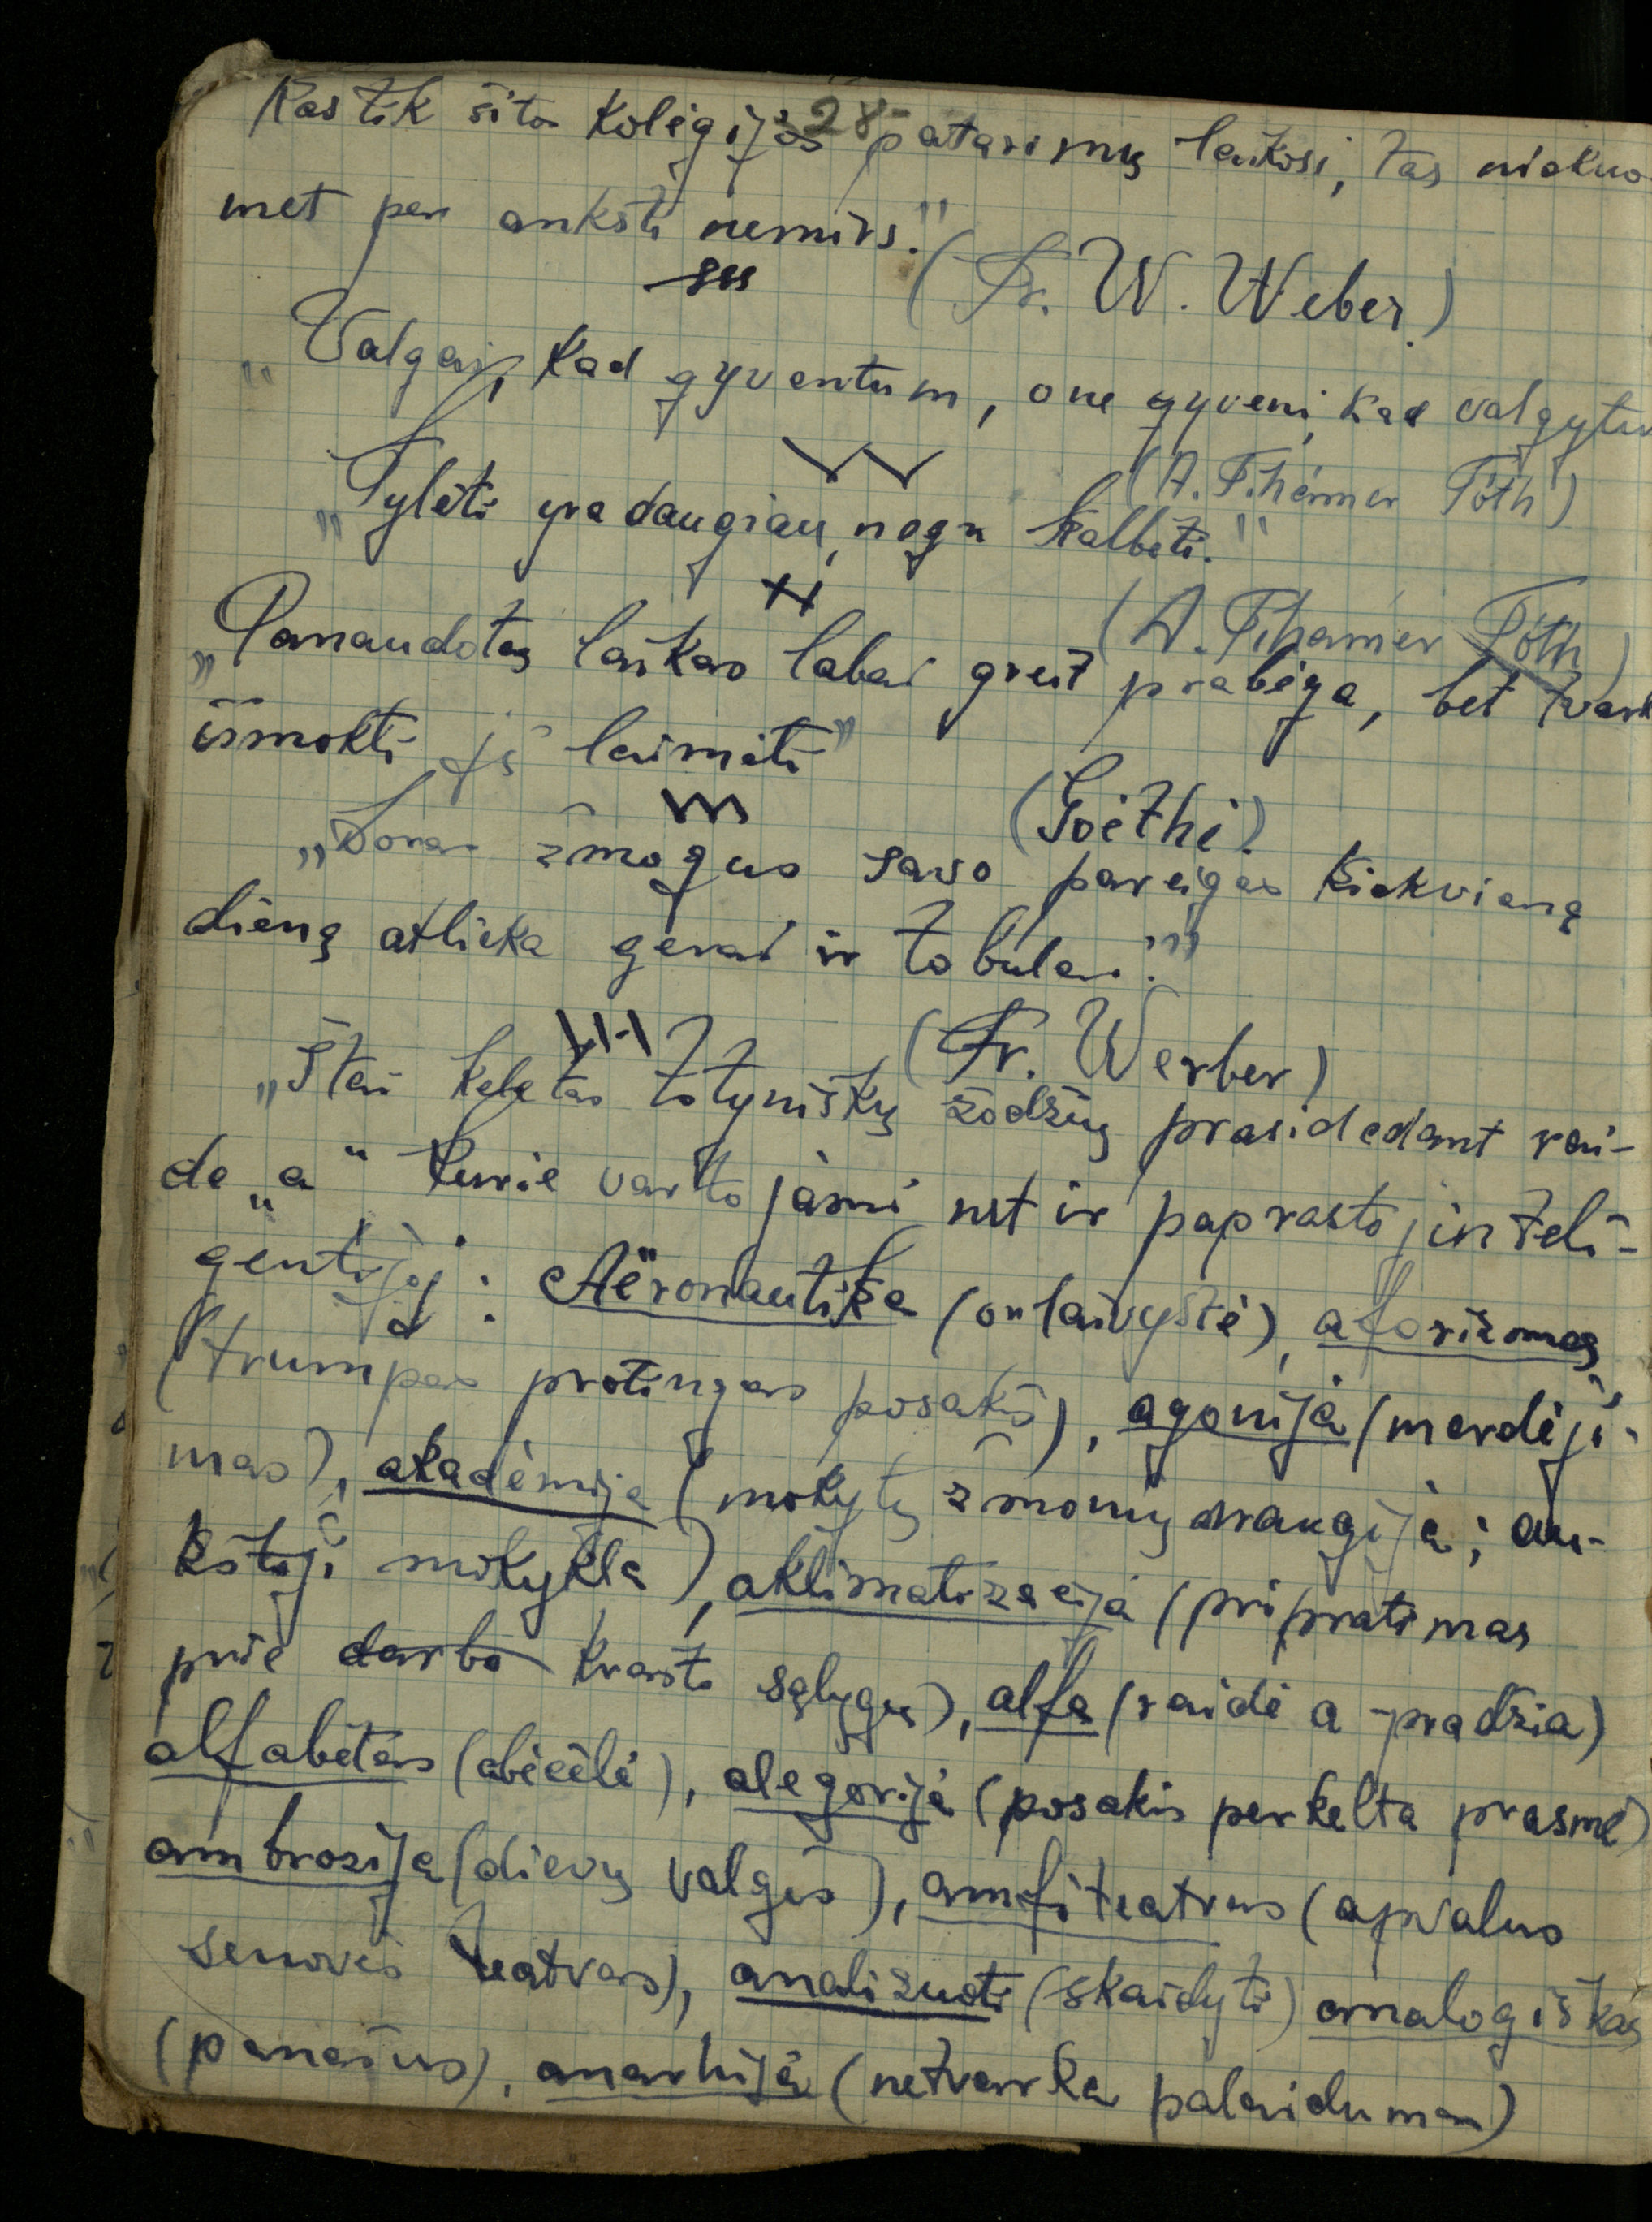 28
Kas tik šitos kolegijos patarimų laikosi, tas niekuo-
met per anksti nemirs."
(Fr. W. Weber.)
„Valgai, kad gyventum, o ne gyveni, kad valgytu
(A. Tihamer Tóth)
„Tylėti yra daugiau, negu kalbėti."
(A. Tihamer Tóth)
„Panaudotas laikas labai greit prabėga, bet tvark
išmokti jį laimėti"
(Goethi.)
„Doras žmogus savo pareigas kiekvieną
dieną atlieka gerai ir tobulai."
(Fr. Werber)
„Štai keletas lotyniškų žodžių prasidedant rai-
de „a" kurie vartojami net ir paprastoj inteli-
gentijoj: Aëronautika (orlaivystė), aforizmas
(trumpas protingas posakis), agonija (merdėji-
mas), akadėmija (mokytų žmonių draugija; au-
kštoji mokykla), aklimatizacija (pripratimas
prie darbo krašto sąlygų), alfa (raidė a - pradžia)
alfabėtas (abėcėlė), alegorija (posakis perkelta prasme)
ambrozija (dievų valgis), amfiteatrus (apvalus
senovės teatras), analizuoti (skaidyti) analogiškas
(panašus), anarhija (netvarka palaidumas)